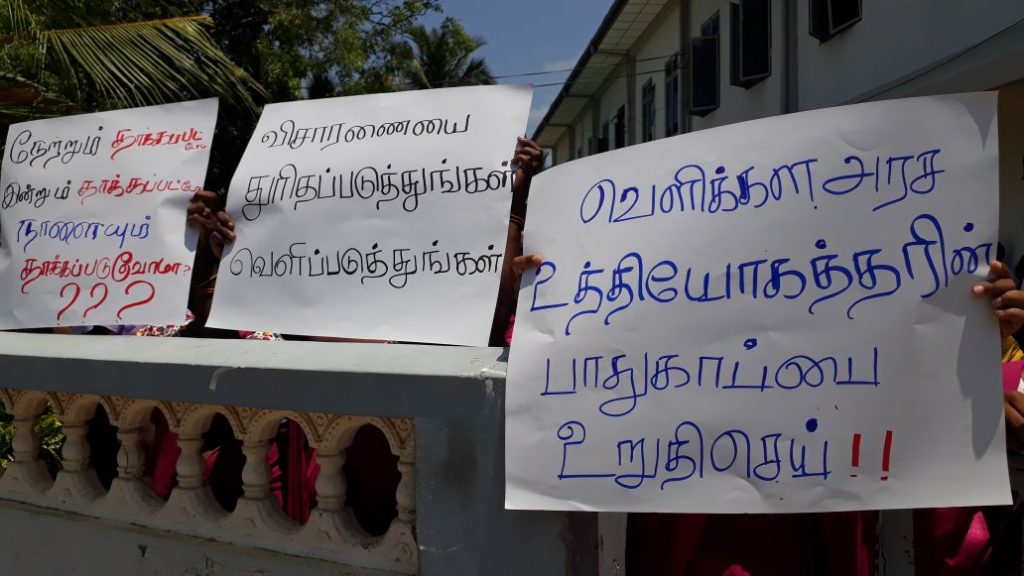 நேற்றும் தாக்கப்பட்டோம்
இன்றும் தாக்கப்பட்டோம்
நாளையும்
தாக்கப்படுவோமா?
???
விசாரணையை
துரிதப்படுத்துங்கள்
வெளிப்படுத்துங்கள்
வெளிக்கள அரச
உத்தியோகத்தரின்
பாதுகாப்பை
உறுதிசெய் !!